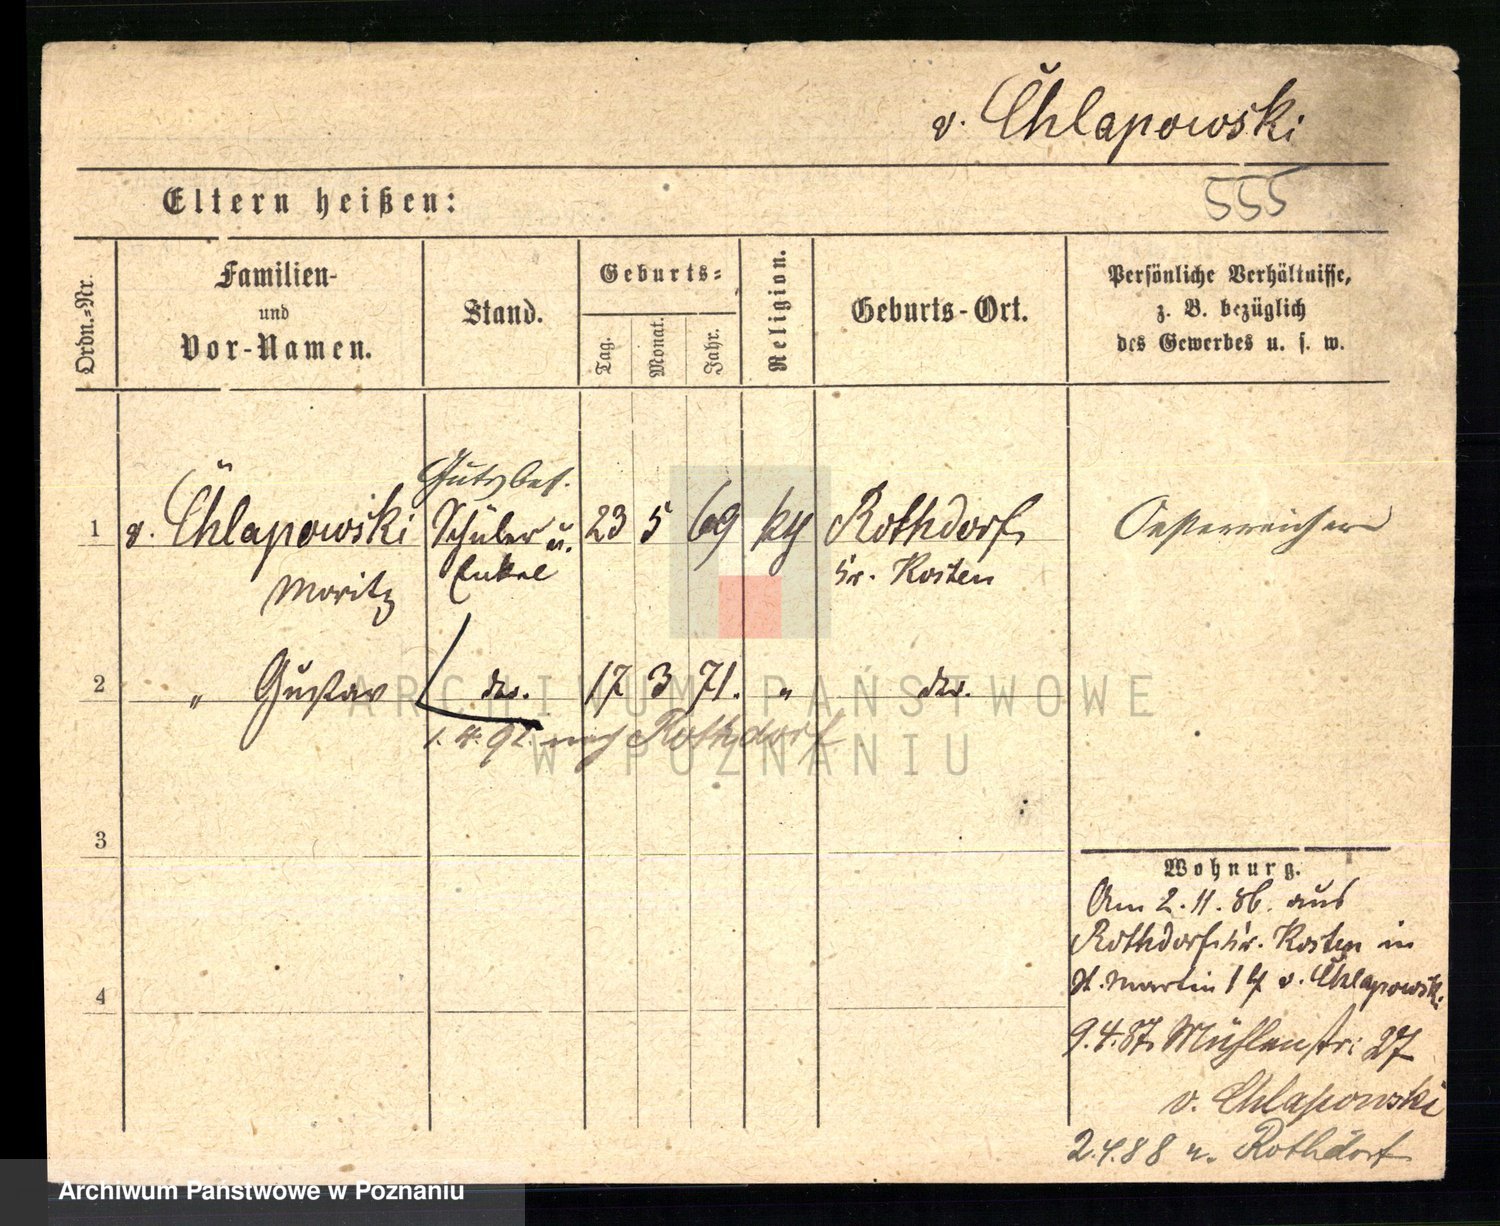 v. Chlapowski
Eltern heißen:
555
Ordn.=Nr.
Familien-
und
Vor-Namen.
Stand.
Geburts=
Tag.
Monat.
Jahr.
Religion.
Geburts-Ort.
Persönliche Verhältnisse,
z. B. bezüglich
des Gewerbes u. s. w.
Gutsbes.
1 v. Chlapowski Schüler u. 23 5 69 Rothdorf Oesterreicher
Moritz Enkel Kr. Kosten
2 " Gustav do. 17 3 71. " do.
1. 4. 92. nach Rothdorf
3
4
Wohnung.
Am 2. 11. 86. aus
Rothdorf Kr. Kosten in
St. Martin 14 v. Chlapowski
9.4.87. Mühlenstr: 27
v. Chlapowski
2.4.88 n. Rothdorf
ARCHIWUM PAŃSTWOWE
W POZNANIU
Archiwum Państwowe w Poznaniu